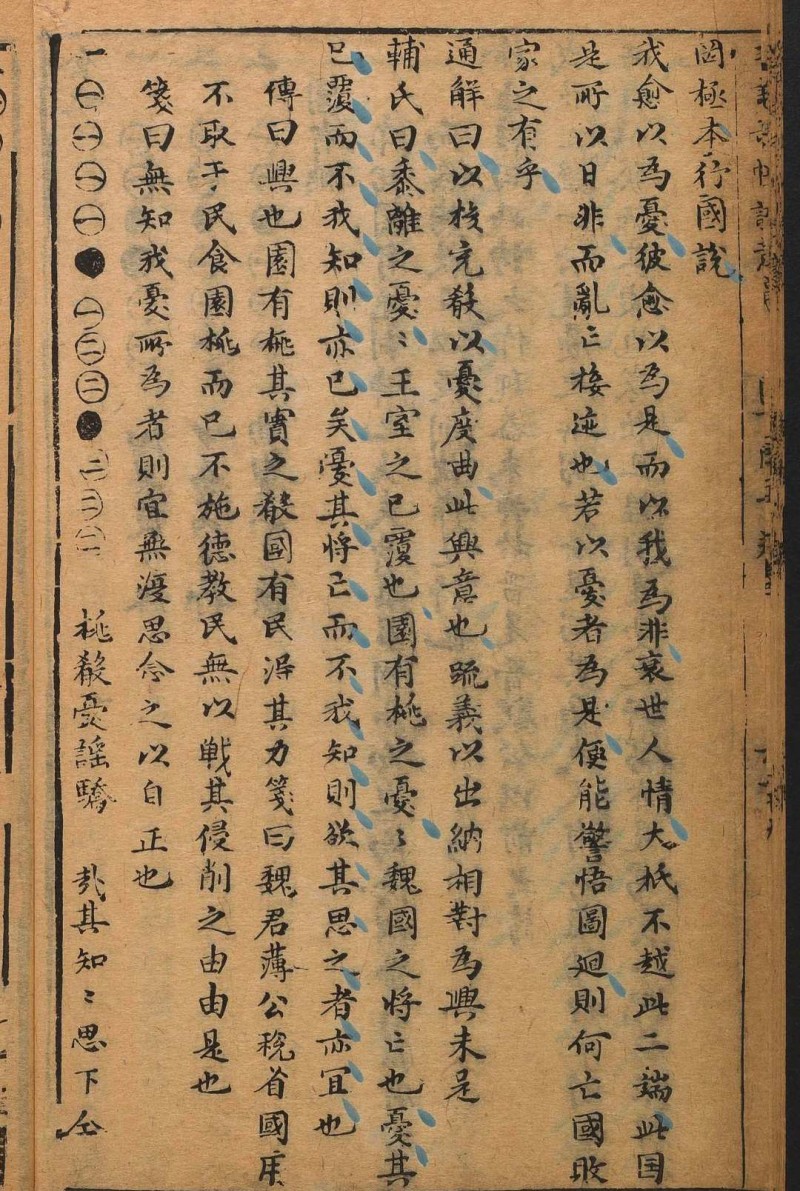 罔極本行國說
我愈以為憂彼愈以為是而以我為非衰世人情大抵不越此二端此国
是所以日非而亂亡接迹也若以憂者為是便能警悟圖廻則何亡國敗
家之有乎
通解曰以核充殽以憂度曲此興意也疏義以出納相對為興未足
輔氏曰黍離之憂〻王室之已覆也園有桃之憂〻魏國之将亡也憂其
已覆而不我知則亦已矣憂其将亡而不我知則欲其思之者亦宜也
傳曰興也園有桃其實之殽國有民淂其力箋曰魏君薄公稅省國用
不取于民食園桃而已不施徳教民無以戦其侵削之由由是也
箋曰無知我憂所為者則宜無復思念之以自正也
一㊀㊀㊀●㊀㊁㊁●㊂㊂㊂ 桃殽憂謡驕 哉其知〻思下仝